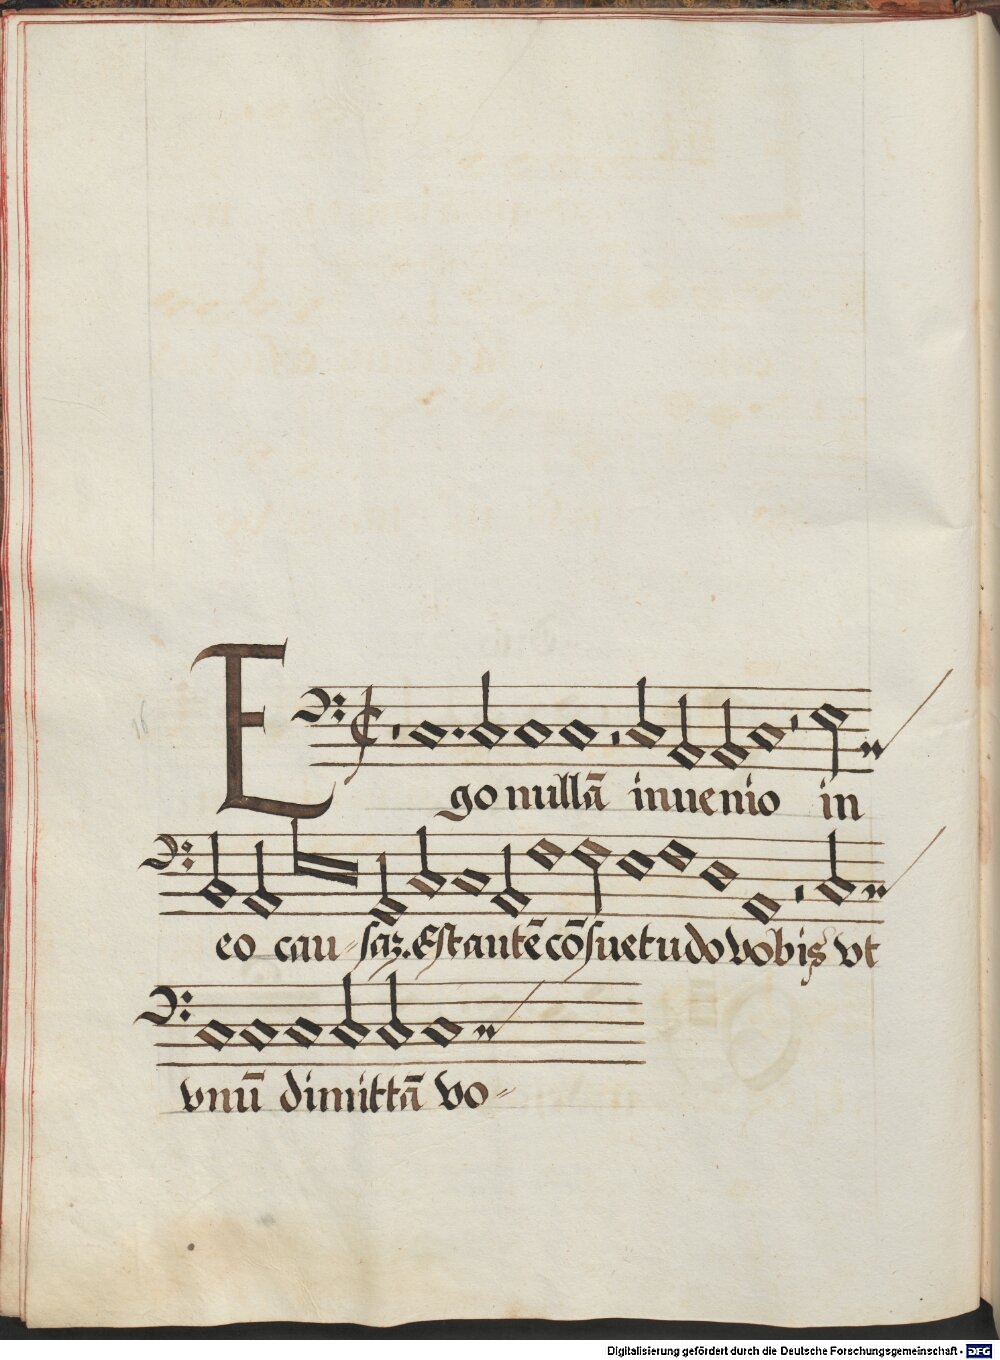 Ego nullā inuenio in
eo cau-saz. Est autē cōsuetudo vobis vt
vnū dimittā vo-
16
Digitalisierung gefördert durch die Deutsche Forschungsgemeinschaft - DFG